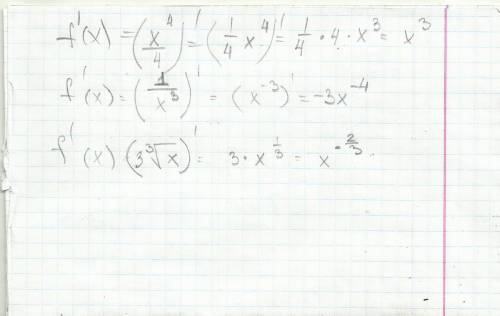 f'(x) = (x⁴/4)' = (1/4 x⁴)' = 1/4 · 4 · x³ = x³
f'(x) = (1/x³)' = (x⁻³)' = -3x⁻⁴
f'(x) (3∛x)' = 3 · x^(1/3) = x^(-2/3)